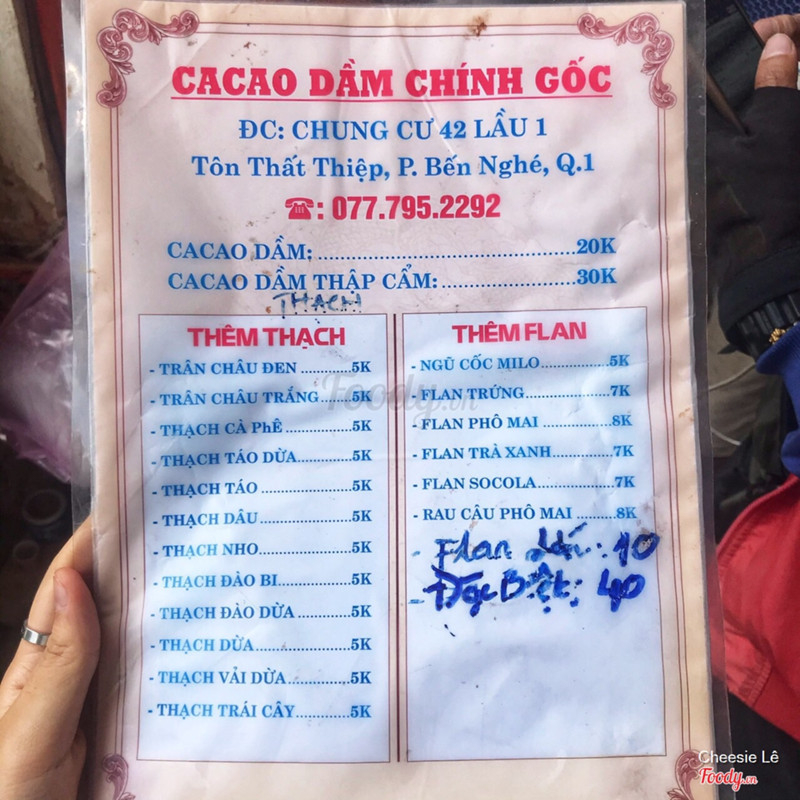 CACAO DẦM CHÍNH GỐC
ĐC: CHUNG CƯ 42 LẦU 1
Tôn Thất Thiệp, P. Bến Nghé, Q.1
☎: 077.795.2292
CACAO DẦM; ..........20K
CACAO DẦM THẬP CẨM: ..........30K
THẠCH
THÊM THẠCH
- TRÂN CHÂU ĐEN ..........5K
- TRÂN CHÂU TRẮNG ..........5K
- THẠCH CÀ PHÊ ..........5K
- THẠCH TÁO DỪA ..........5K
- THẠCH TÁO ..........5K
- THẠCH DÂU ..........5K
- THẠCH NHO ..........5K
- THẠCH ĐẢO BI ..........5K
- THẠCH ĐẢO DỪA ..........5K
- THẠCH DỪA ..........5K
- THẠCH VẢI DỪA ..........5K
- THẠCH TRÁI CÂY ..........5K
THÊM FLAN
- NGŨ CỐC MILO ..........5K
- FLAN TRỨNG ..........7K
- FLAN PHÔ MAI ..........8K
- FLAN TRÀ XANH ..........7K
- FLAN SOCOLA ..........7K
- RAU CÂU PHÔ MAI ..........8K
- Flan : 10
- Đặc Biệt: 40
Foody.vn
Cheesie Lê
Foody.vn